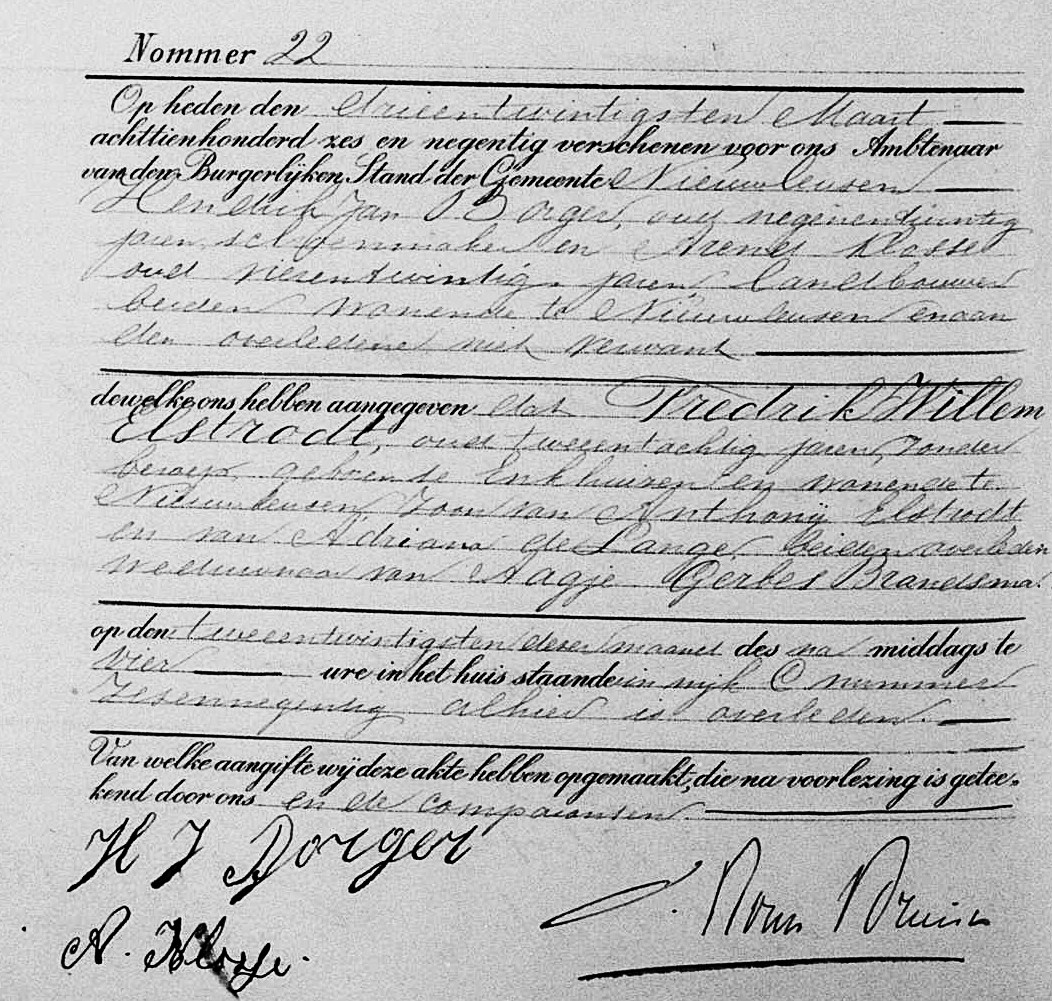 Nommer 22
Op heden den drieentwintigsten Maart
achttienhonderd zes en negentig verschenen voor ons Ambtenaar
van den Burgerlijken Stand der Gemeente Nieuwleusen
Hendrik Jan Borger, oud negenentwintig
jaren, schoenmaker en Arend Klosse
oud vierentwintig jaren landbouwer
beiden wonende te Nieuwleusen en aan
den overledene niet verwant
dewelke ons hebben aangegeven dat Fredrik Willem
Elstrodt, oud tweeentachtig jaren, zonder
beroep geboren te Enkhuizen en wonende te
Nieuwleusen, Zoon van Anthonij Elstrodt
en van Adriana de Lange, beiden overleden
weduwnaar van Aagje Gerbes Brandsma.
op den tweeentwintigsten dezer maand des na middags te
vier ure in het huis staande in wijk C nummer
Zesennegentig alhier is overleden.
Van welke aangifte wij deze akte hebben opgemaakt, die na voorlezing is getee-
kend door ons en de comparanten.
H J Borger
A. Klosse.
Bruin